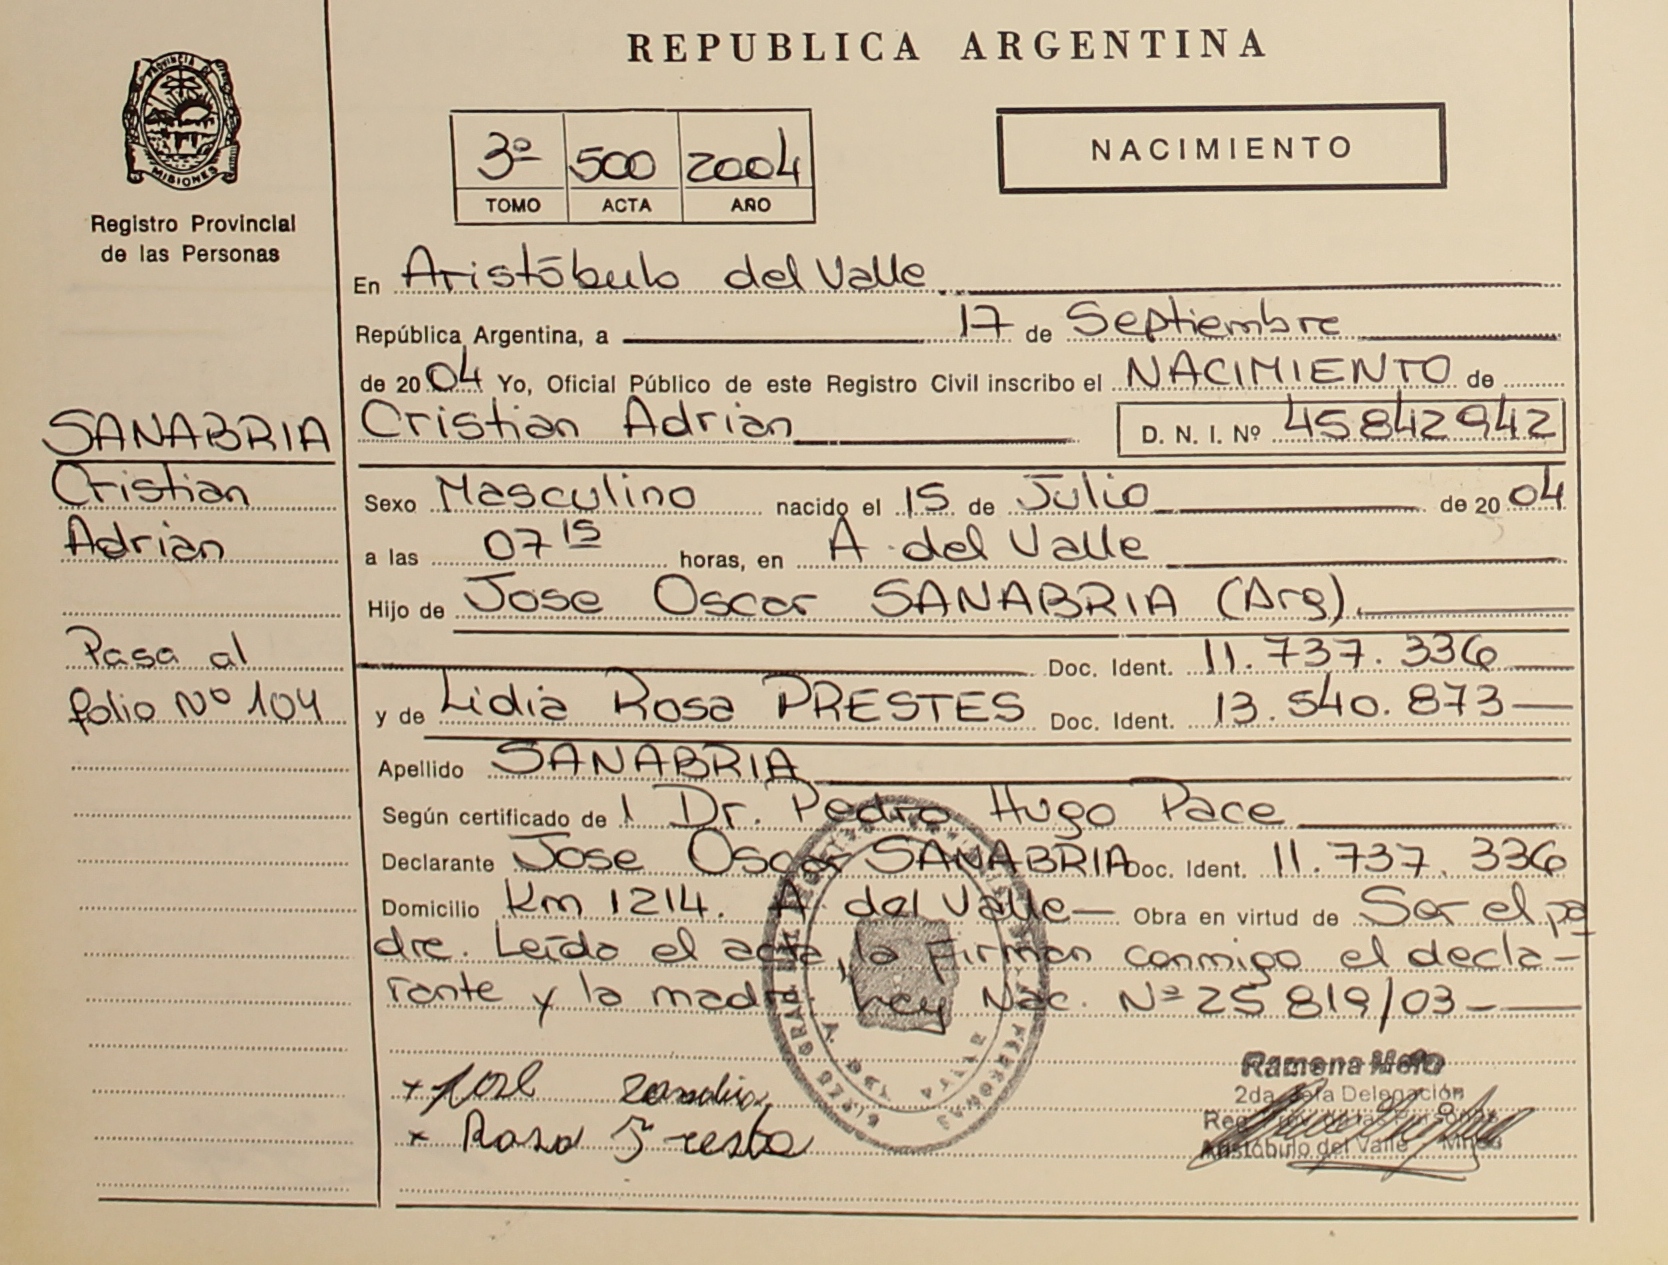 REPUBLICA ARGENTINA
PROVINCIA DE
MISIONES
Registro Provincial
de las Personas
3º 500 2004
TOMO ACTA AÑO
NACIMIENTO
En Aristóbulo del Valle
República Argentina, a 17 de Septiembre
de 2004 Yo, Oficial Público de este Registro Civil inscribo el NACIMIENTO de
Cristian Adrian D. N. I. Nº 45842942
SANABRIA
Cristian
Adrian
Pasa al
folio Nº 104
Sexo Masculino nacido el 15 de Julio de 2004
a las 07 15 horas, en A. del Valle
Hijo de Jose Oscar SANABRIA (Arg).
Doc. Ident. 11.737.336
y de Lidia Rosa PRESTES Doc. Ident. 13.540.873
Apellido SANABRIA
Según certificado de l Dr. Pedro Hugo Pace
Declarante Jose Oscar SANABRIA Doc. Ident. 11.737.336
Domicilio Km 1214. A. del Valle — Obra en virtud de Ser el pa
dre. Leído el acta, la Firman conmigo el decla-
rante y la madre. Ley Nac. Nº 25819/03
Ramona Melo
2da Delegación
Aristóbulo del Valle - Mnes